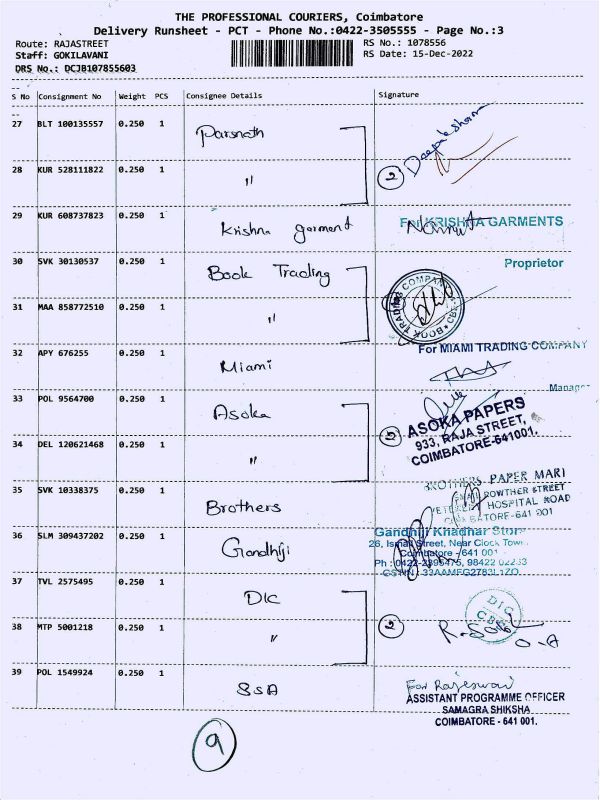 THE PROFESSIONAL COURIERS, Coimbatore
Delivery Runsheet - PCT - Phone No.:0422-3505555 - Page No.:3
Route: RAJASTREET
Staff: GOKILAVANI
DRS No.: DCJB107855603
RS No.: 1078556
RS Date: 15-Dec-2022
S No Consignment No Weight PCS Consignee Details Signature
27 BLT 100135557 0.250 1 Parsnath
28 KUR 528111822 0.250 1 " 2
29 KUR 608737823 0.250 1 Krishna garment For KRISHNA GARMENTS
Proprietor
30 SVK 30130537 0.250 1 Book Trading
BOOK TRADING COMPANY
31 MAA 858772510 0.250 1 "
32 APY 676255 0.250 1 Miami For MIAMI TRADING COMPANY
Manager
33 POL 9564700 0.250 1 Asoka 2 ASOKA PAPERS
933, RAJA STREET,
COIMBATORE-641001.
34 DEL 120621468 0.250 1 "
35 SVK 10338375 0.250 1 Brothers BROTHERS PAPER MART
ROWTHER STREET
HOSPITAL ROAD
COIMBATORE-641 001
36 SLM 309437202 0.250 1 Gandhiji Gandhiji Khadhar Store
26, Ismail Street, Near Clock Tower
Coimbatore - 641 001
37 TVL 2575495 0.250 1 DIC DIC
CBE
38 MTP 5001218 0.250 1 " 2
39 POL 1549924 0.250 1 SSA For Rajeswari
ASSISTANT PROGRAMME OFFICER
SAMAGRA SHIKSHA
COIMBATORE - 641 001.
9